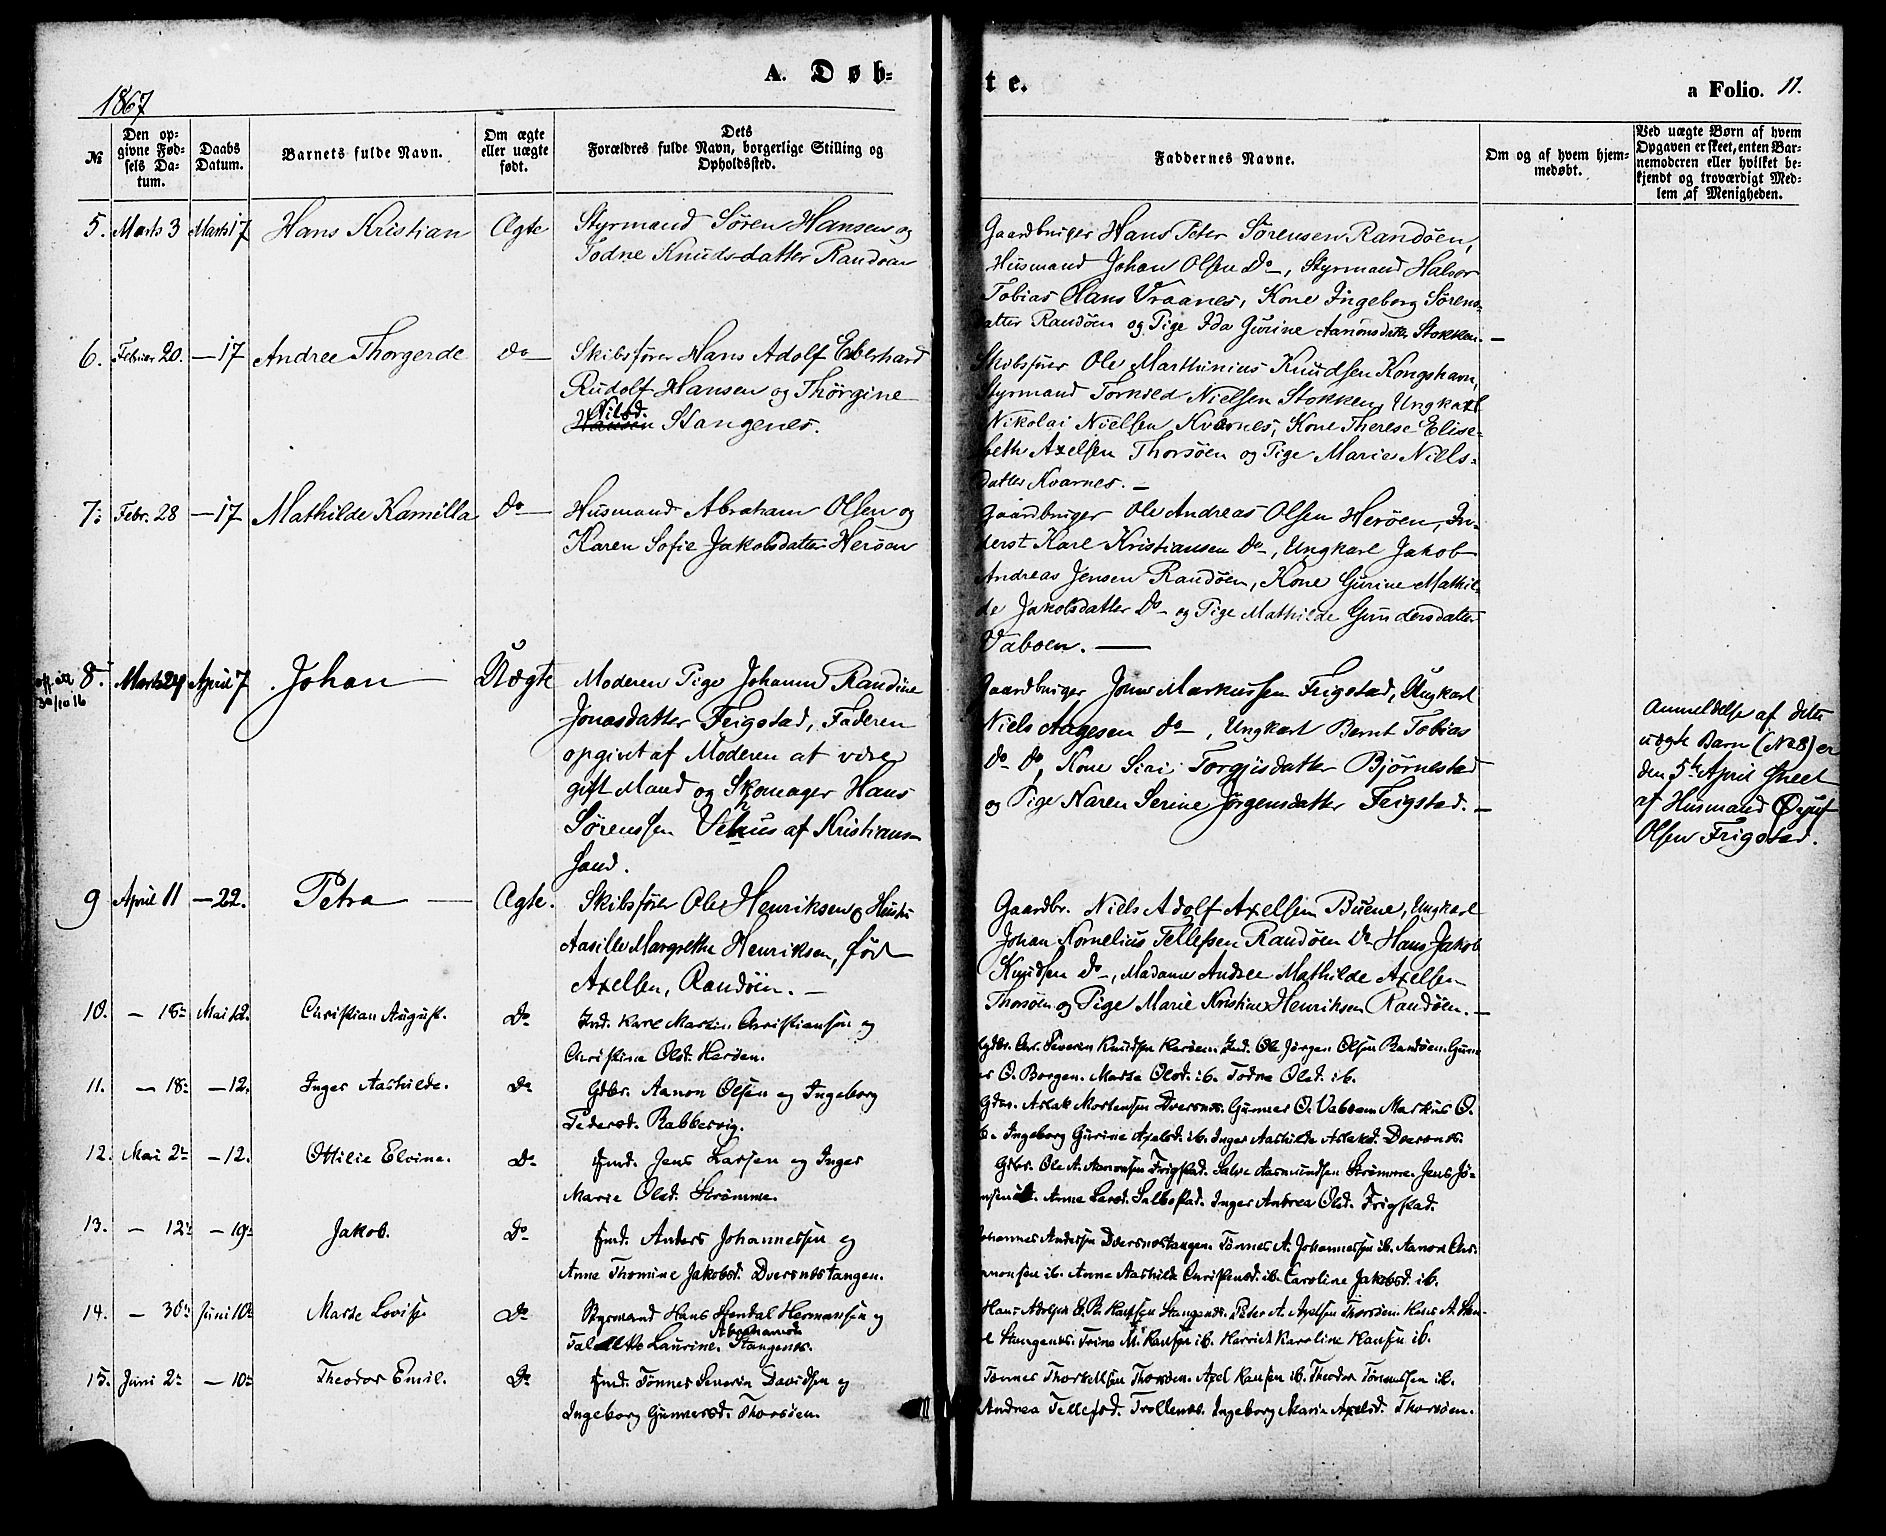 1867
A. Døb-
te.
a Folio. 11.
№
Den op-
givne Fød-
sels Da-
tum.
Daabs
Datum.
Barnets fulde Navn.
Om ægte
eller uægte
født.
Dets
Forældres fulde Navn, borgerlige Stilling og
Opholdssted.
Faddernes Navne.
Om og af hvem hjem-
medøbt.
Ved uægte Børn af hvem
Opgaven er skeet, enten Bar-
nemoderen eller hvilket be-
kjendt og troværdigt Med-
lem af Menigheden.
5. Marts 3 Marts 17 Hans Kristian Ægte Styrmand Søren Hansen og
Todne Knudsdatter Randøen
Gaardbruger Hans Peter Sørensen Randøen,
Husmand Johan Olsen Do, Styrmand Halvor
Tobias Hans Vraanes, Kone Ingeborg Sørens-
datter Randøen og Pige Ida Gurine Aanonsdatter Stokken. —
6. Februar 20. — 17 Andree Thorgerde do Skibsfører Hans Adolf Eberhard
Rudolf Hansen og Thørgine
Nilsd.
Hansen Stangenes.
Skibsfører Ole Marthinius Knudsen Kongshavn,
Styrmand Torkild Nielsen Stokken, Ungkarl
Nikolai Nielsen Kvarnes, Kone Therese Elise-
beth Axelsen Thorsøen og Pige Marie Niels-
datter Kvarnes. —
7. Febr. 28 — 17 Mathilde Kamilla Do Husmand Abraham Olsen og
Karen Sofie Jakobsdatter Herøen
Gaardbruger Ole Andreas Olsen Herøen, In-
derst Karl Kristiansen Do, Ungkarl Jakob
Andreas Jensen Randøen, Kone Gurine Mathil-
de Jakobsdatter Do og Pige Mathilde Gundersdatter
Vaboen. —
30/10 16
8. Marts 24 April 7 Johan Uægte Moderen Pige Johanne Randine
Jonasdatter Frigstad, Faderen
opgivet af Moderen at være
gift Mand og Skomager Hans
Sørenssen Vehus af Kristians-
sand.
Gaardbruger Jens Markussen Frigstad, Ungkarl
Niels Aagesen Do, Ungkarl Bernt Tobias
do Do, Kone Siri Torgjusdatter Bjørnestad
og Pige Karen Serine Jørgensdatter Frigstad. —
Anmeldelse af dette
uægte Barn (No 8) er
den 5te April skeet
af Husmand
Olsen Frigstad.
9 April 11 — 22. Petra Ægte. Skibsfører Ole Henriksen og Hustru
Aasille Margrethe Henriksen, født
Axelsen, Randøen. —
Gaardbr. Niels Adolf Axelsen Buene, Ungkarl
Johan Kornelius Tellefsen Randøen Do Hans Jakob
Knudsen do, Madame Andree Mathilde Axelsen
Thorsøen og Pige Marie Kristine Henriksen Randøen. —
10. — 18de Mai 12. Christian August. Do Ind. Karl Martin Christiansen og
Christine Olsd. Herøen.
Gdbr. Chr. Severin Knudsen Herøen. Ind. Ole Jørgen Olsen Randøen. Gun-
O. Borgen. Marte Olsd. ib. Todne Olsd. ib.
11. — 18de — 12. Inger Aashilde. Do Gdbr. Aanon Olsen og Ingeborg
Pedersd. Rabbersvig.
Gdbr. Aslak Mortensen Dversnes. Gunner O. Vaboen. Markus O.
ib. Ingeborg Gurine Axelsd. ib. Inger Aashilde Aslaksd. Dversnes.
12. Mai 2de — 12. Ottilie Elvine. Do Ind. Jens Larsen og Inger
Marie Olsd. Strømme.
Gdbr. Ole A. Aanonsen Frigstad. Salve Aasmundsen Strømme. Jens Jø-
Anne Larsd. Salbostad. Inger Andrea Olsd. Frigstad.
13. — 12te — 19de Jakob. Do Ind. Anders Johannessen og
Anne Thomine Jakobsd. Dversnestangen.
Johannes Andersen Dversnestangen. Tønnes A. Johannessen ib. Aanon Chr.
Aanonsen ib. Anne Aashilde Christensd. ib. Caroline Jakobsd. ib.
14. — 30te Juni 10de Marte Lovise Do Styrmand Hans Stendal Hermansen og
Abrahamsd.
Laurine Stangenes.
Hans Adolph E. R. Hansen Stangenes. Peter A. Axelsen Thorsøen. Hans A. Han-
Stangenes. Trine M. Hansen ib. Harriet Karoline Hansen ib.
15. Juni 2de — 10de Theodor Emil. Do Ind. Tønnes Severin Davidsen og
Ingeborg Gunnersd. Thorsøen.
Tønnes Thorkelsen Thorsøen. Axel Hansen ib. Theodor Tønnessen ib.
Andrea Tellefsd. Trollenes. Ingeborg Marie Axelsd. Thorsøen.